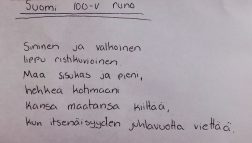 Suomi 100-v runo
Sininen ja valkoinen
lippu ristikuvioinen.
Maa sisukas ja pieni,
hehkea kotimaani
Kansa maatansa kiittää,
kun itsenäisyyden juhlavuotta viettää.